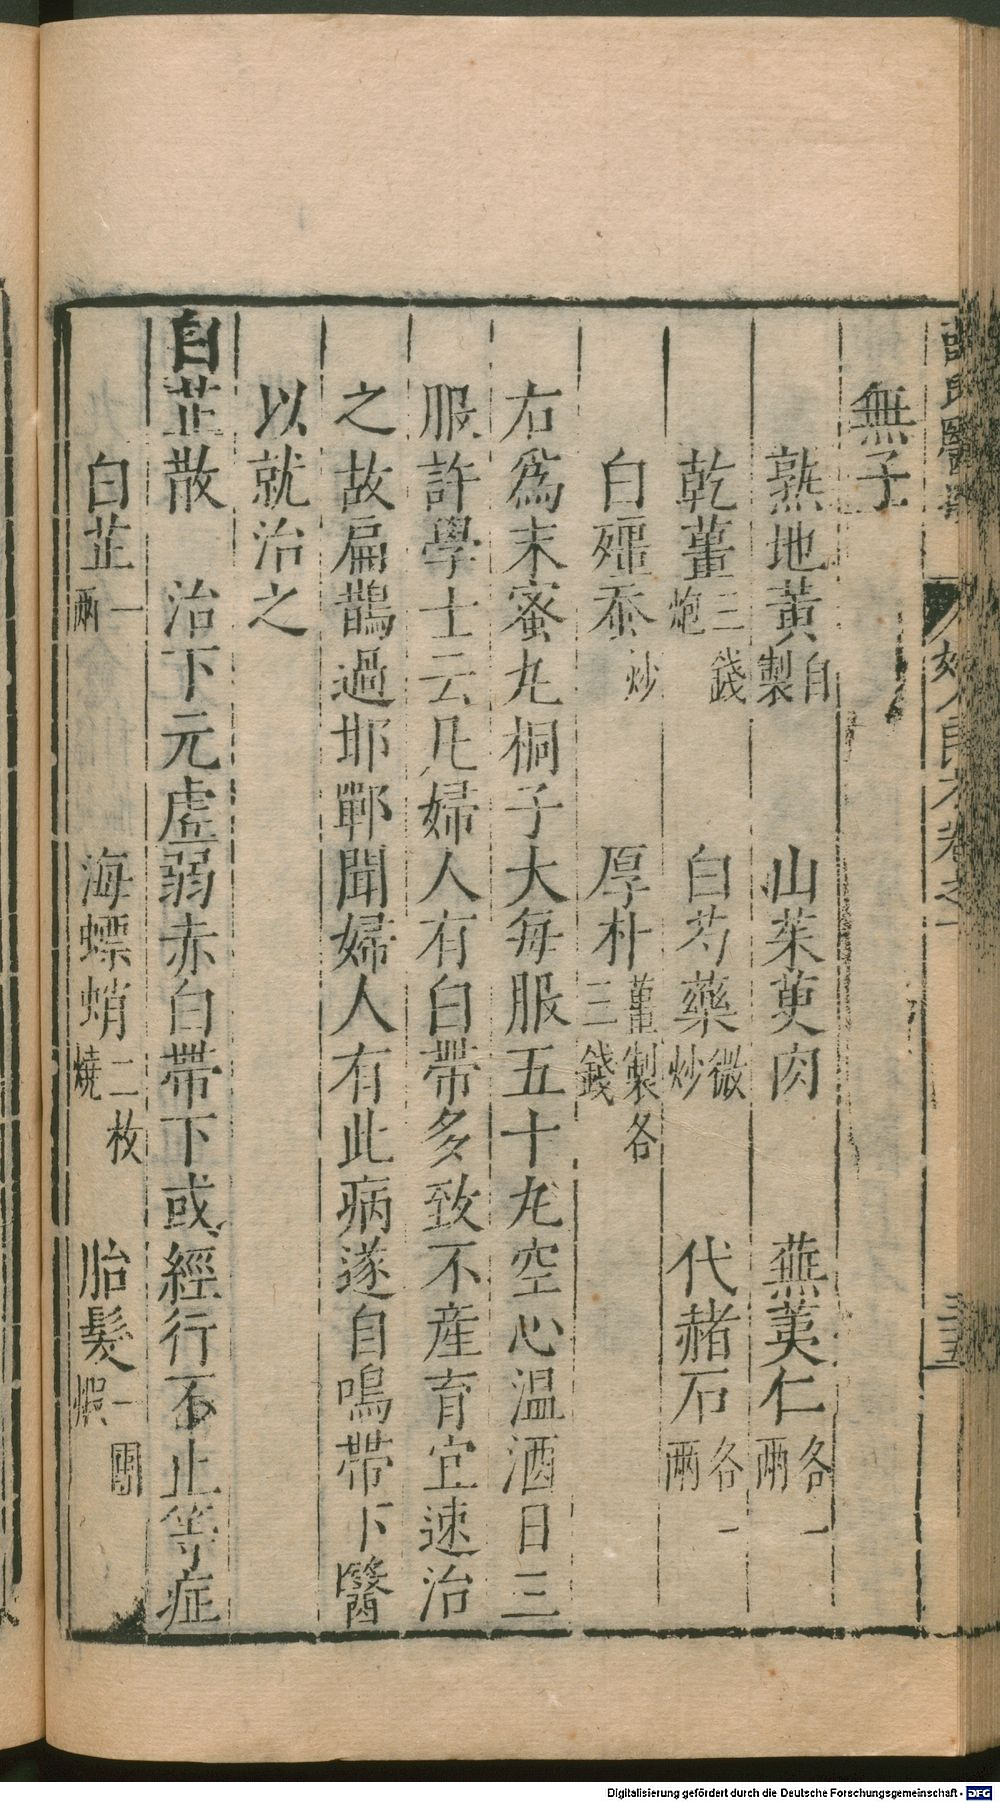 薛氏醫案 婦人良方卷之一 三五
無子
熟地黃自製 山茱萸肉 蕪荑仁各一兩
乾薑三錢炮 白芍藥微炒 代赭石各一兩
白殭蚕炒 厚朴薑製各三錢
右爲末蜜丸桐子大每服五十丸空心温酒日三
服許學士云凡婦人有白帶多致不産育宜速治
之故扁鵲過邯鄲聞婦人有此病遂自鳴帶下醫
以就治之
白芷散 治下元虚弱赤白帶下或經行不止等症
白芷一兩 海螵蛸二枚燒 胎髮一團煆
Digitalisierung gefördert durch die Deutsche Forschungsgemeinschaft - DFG